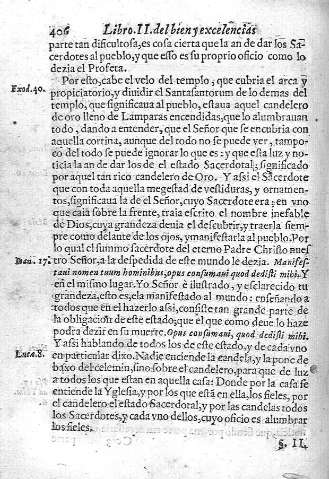 406 Libro.II.del bien y excelencias
parte tan dificultosa, es cosa cierta que la an de dar los Sa-
cerdotes al pueblo, y que esto es su proprio oficio como lo
dezia el Profeta.
Por esto, cabe el velo del templo, que cubria el arca y
Exod.40. propiciatorio, y diuidir el Santasantorum de lo demas del
templo, que significaua al pueblo, estaua aquel candelero
de oro lleno de Lamparas encendidas, que lo alumbrauan
todo, dando a entender, que el Señor que se encubria con
aquella cortina, aunque del todo no se puede ver, tampo-
co del todo se puede ignorar lo que es: y que esta luz y no-
ticia la an de dar los de el estado Sacerdotal, significado
por aquel tan rico candelero de Oro. Y assi el Sacerdote
que con toda aquella megestad de vestiduras, y ornamen-
tos, significaua la de el Señor, cuyo Sacerdote era: en vno
que caia sobre la frente, traia escrito el nombre inefable
de Dios, cuya grandeza denia el descubrir, y traerla siem-
pre como delante de los ojos, y manifestarla al pueblo. Por
lo qual el summo sacerdote del eterno Padre Christo nues
17. tro Señor, a la despedida de este mundo le dezia. Manifes-
taui nomen tuum hominibus, opus consumaui quod dedisti mihi. Y
en el mismo lugar. Yo Señor è ilustrado, y esclarecido tu
grandeza, esto es, ela manifestado al mundo: enseñando a
todos que en el hazerlo assi, consiste tan grande parte de
la obligacion de este estado, que el que como deue lo haze
podra dezir en su muerte, opus consumaui, quod dedisti mihi.
Y assi hablando de todos los de este estado, y de cada vno
Luca.8. en particular dixo. Nadie enciende la candela, y la pone de
baxo del celemin, sino sobre el candelero, para que de luz
a todos los que estan en aquella casa: Donde por la casa se
entiende la Yglesia, y por los que está en ella, los fieles, por
el candelero el estado Sacerdotal, y por las candelas todos
los Sacerdotes, y cada vno dellos, cuyo oficio es alumbrar
los fieles.
§. II.